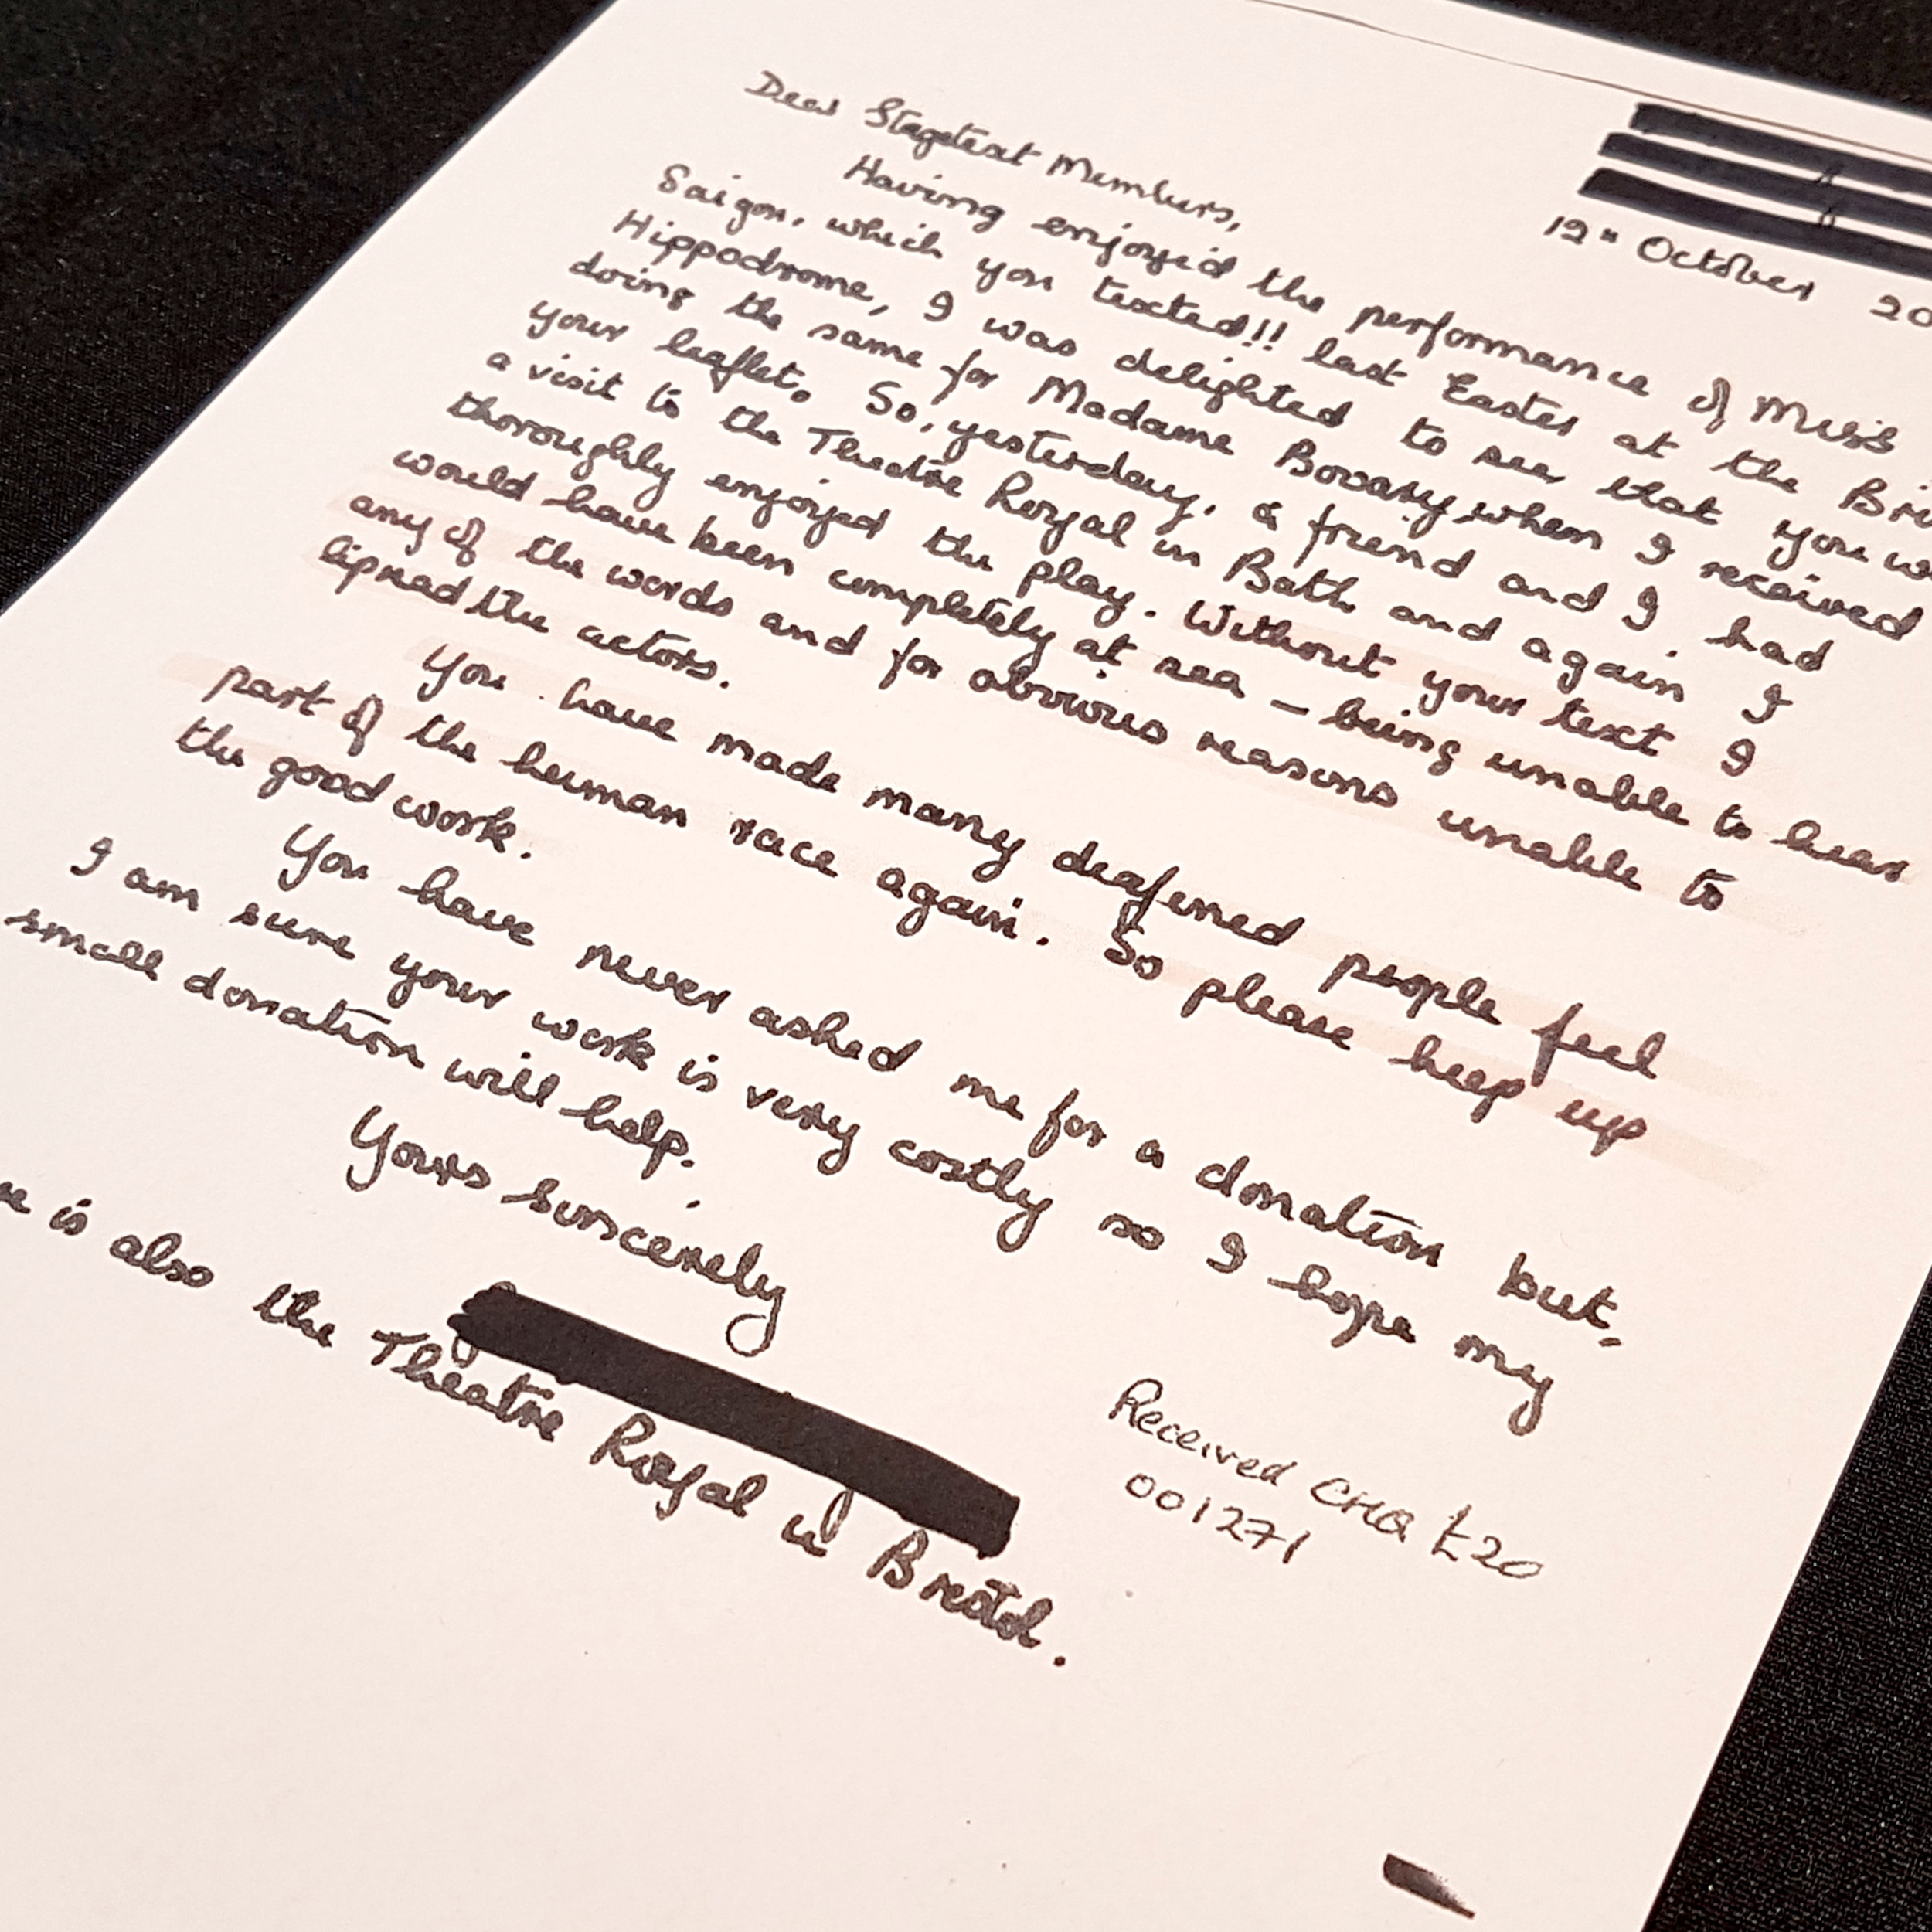 12th October 20
Dear Stagetext Members,
Having enjoyed the performance of Miss
Saigon, which you texted!! last Easter at the Bri
Hippodrome, I was delighted to see that you we
doing the same for Madame Bovary when I received
your leaflet. So, yesterday, a friend and I had
a visit to the Theatre Royal in Bath and again I
thoroughly enjoyed the play. Without your text I
would have been completely at sea – being unable to hear
any of the words and for obvious reasons unable to
lipread the actors.
You have made many deafened people feel
part of the human race again. So please keep up
the good work.
You have never asked me for a donation but,
I am sure your work is very costly so I hope my
small donation will help.
Yours sincerely
re is also the Theatre Royal in Bristol.
Received CHQ £20
001271